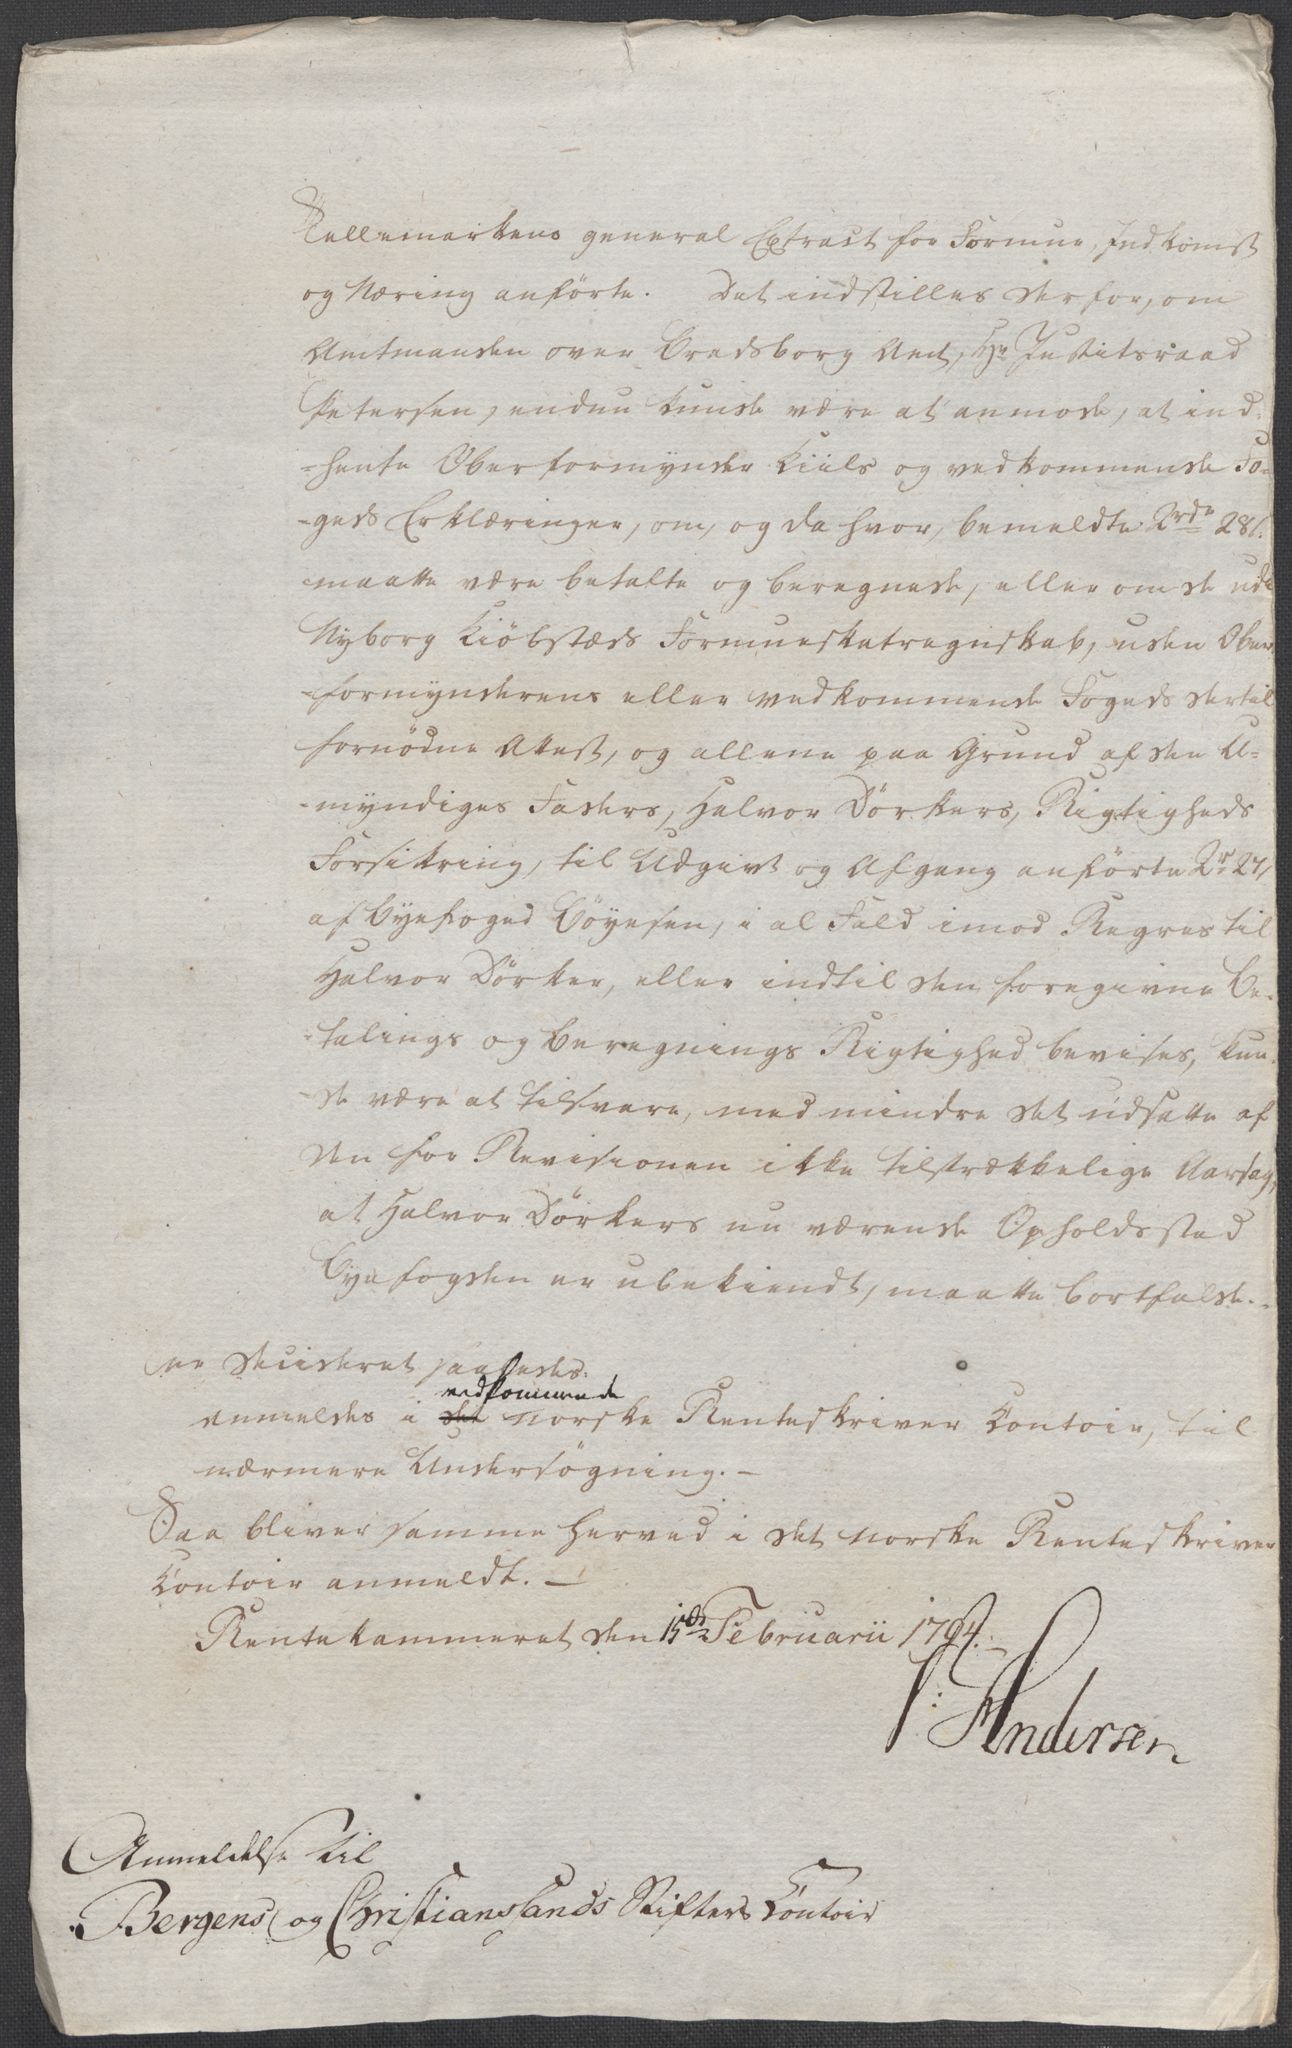 Tellemarkens general Extract for Formue, Indkomst
og Næring anførte. Det indstilles derfor, om
Amtmanden over Bradsborg Amt, Hr Justitsraad
Petersen, endnu kunde være at anmode, at ind-
-hente Oberformynder Kiils og vedkommende Fo-
-geds Erklæringer, om, og da hvor, bemeldte 2 rdr 28 s.
maatte være betalte og beregnede, eller om de udi
Nyborg Kiöbstæds Formueskatregnskab, uden Ober-
-formynderens eller vedkommende Fogeds dertil
fornödne Attest, og allene paa Grund af den U-
-myndiges Faders, Halvor Dörkers, Rigtigheds
Forsikring, til Udgivt og Afgang anförte 2 r 27 s
af Byefoged Böyesen, i al Fald imod Regres til
Halvor Dörker, eller indtil den foregivne Be-
-talings og Beregnings Rigtighed bevises, kun-
de være at tilsvare, med mindre det udsatte af
den for Revisionen ikke tilstrækkelige Aarsag,
at Halvor Dörkers nu værende Opholdsstad
Byefogden er ubekiendt, maatte bortfalde.-
er decideret saaledes:
vedkommende
anmeldes i det norske Renteskriver Contoir, til
nærmere Undersögning.-
Saa bliver samme herved i det norske Renteskriver
Contoir anmeldt.-
Rentekammeret den 15de Februarii 1794.
Andersen
Anmeldelse til
Bergens og Christianslands Stifters Contoir